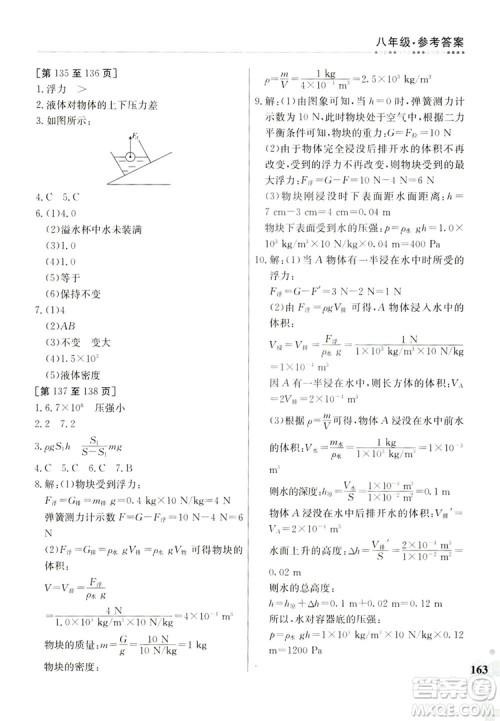 八年级·参考答案
[第 135 至 136 页]
1. 浮力 >
2. 液体对物体的上下压力差
3. 如图所示
4. C 5. C
6. (1)4.0
(2)溢水杯中水未装满
(4)1.0
(5)等于
(6)保持不变
7. (1)4.0
(2)AB
(3)不变
(4)1.5×10³
(5)液体密度
[第 137 至 138 页]
1. 6.7×10⁶ 压强小
2. 23
3. ρgS₁h S₁/(S−S₁) mg
4. C 5. C 6. B 7. B
8. 解：(1)F浮=G排=m排g
F浮=G排=0.4 kg×10 N/kg=4 N
弹簧测力计示数 F=G−F浮=10 N−4 N=6 N
(2)因 F浮=G排=ρ水gV排=ρ水gV物可得物块的
体积：
V物=V排=F浮/(ρ水g)=
4 N/(1.0×10³ kg/m³×10 N/kg)=4×10⁻⁴ m³
物块的质量：m=G/g=10 N/(10 N/kg)=1 kg
物块的密度：
ρ=m/V=1 kg/(4×10⁻⁴ m³)=2.5×10³ kg/m³
9. 解：(1)由图象可知，当 h=0 时，弹簧测力计
示数为 10 N，此时物块处于空气中，根据二力
平衡条件可知，物块的重力：G=F拉=10 N
(2)由于物体完全浸没后排开水的体积不再
改变，受到的浮力不再改变，
F浮=G−F示=10 N−5 N=5 N
(3)物块刚浸没时下表面距水面距离：h=
7 cm−3 cm=4 cm=0.04 m
物块受到水的压强：p=ρ水gh=1×10³ kg/m³×
10 N/kg×0.04 m=400 Pa
10. 解：(1)当 A 物体有一半浸在水中时所受的
浮力：
F浮=G−F′=3 N−2 N=1 N
(2)由 F浮=ρ水gV排可得，物体浸入水中的
体积：V浸=V排=F浮/(ρ水g)=1 N/(1×10³ kg/m³×10 N/kg)
=1×10⁻⁴ m³
因 A 有一半浸在水中，则 A 的体积：V_A
=2V浸=2×10⁻⁴ m³
(3)根据 ρ=m/V可得，A 物体没有浸入水中前水
的体积：V水=m水/ρ水=1 kg/(1×10³ kg/m³)=1×10⁻³ m³
则水的深度：h水=V水/S=1×10⁻³ m³/(1×10⁻² m²)=0.1 m
A 物体浸没水中之后排开水的体积：V排′
=V_A=2×10⁻⁴ m³
水面上升的高度：Δh=V排′/S=2×10⁻⁴ m³/(1×10⁻² m²)=
0.02 m
则水的总高度：
h=h水+Δh=0.1 m+0.02 m=0.12 m
所以，水对容器底的压强：
p=ρ水gh=1.0×10³ kg/m³×10 N/kg×0.12
m=1200 Pa
163